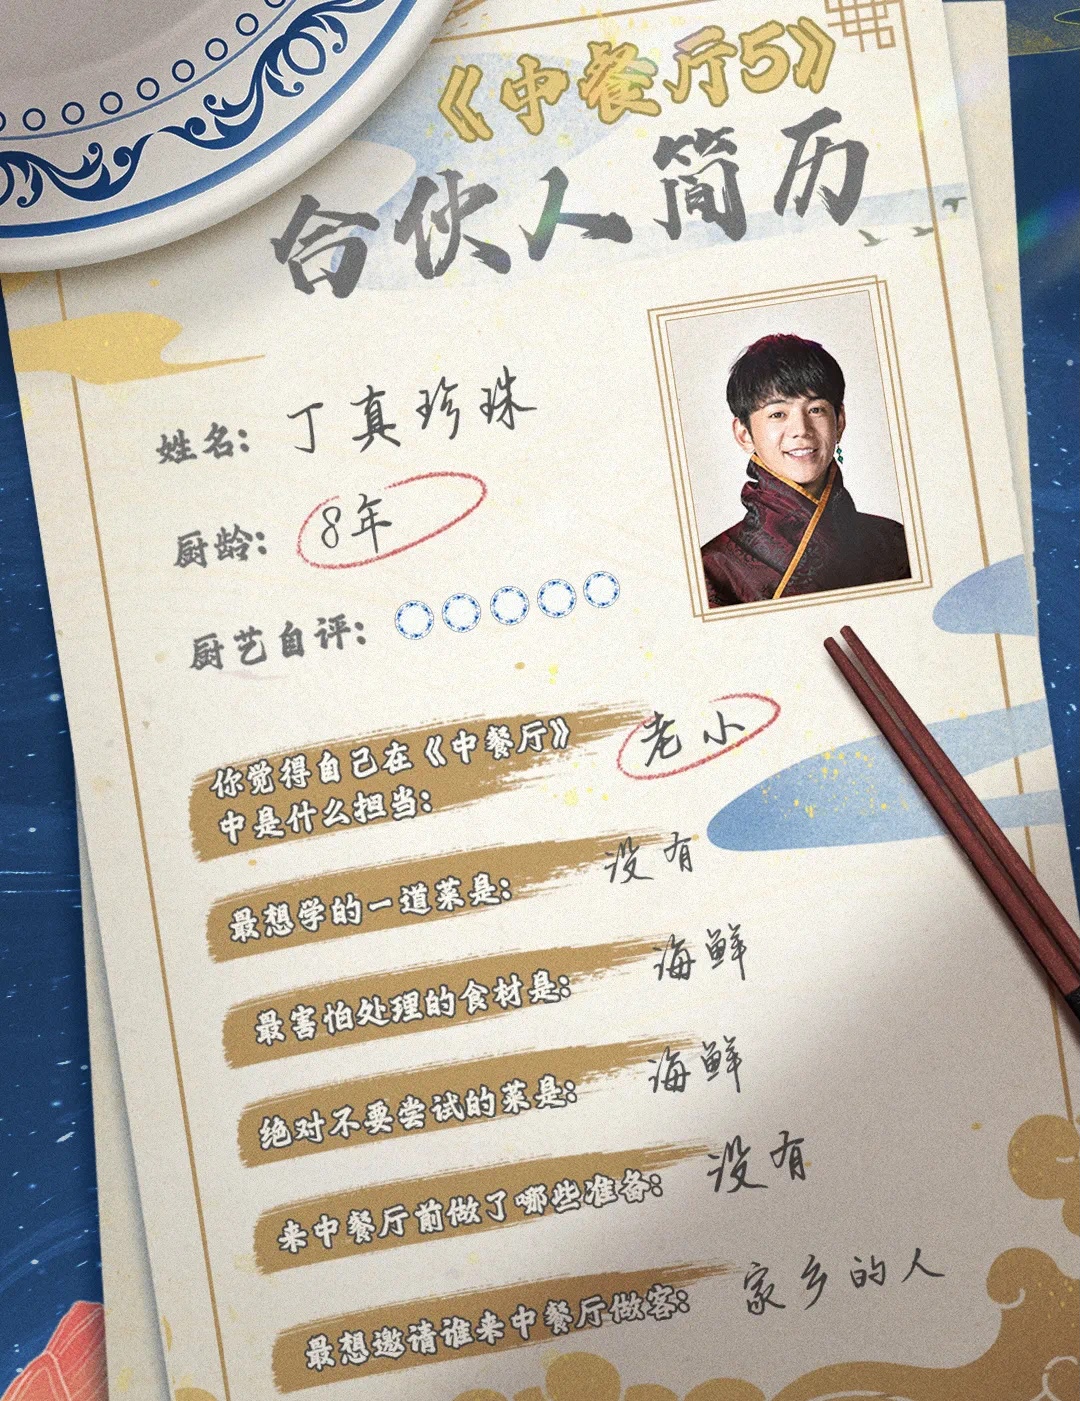 《中餐厅5》
合伙人简历
姓名：丁真珍珠
厨龄：8年
厨艺自评：
你觉得自己在《中餐厅》
中是什么担当：老小
最想学的一道菜是：没有
最害怕处理的食材是：海鲜
绝对不要尝试的菜是：海鲜
来中餐厅前做了哪些准备：没有
最想邀请谁来中餐厅做客：家乡的人